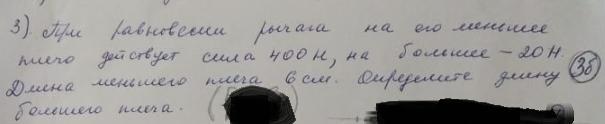 3). При равновесии рычага на его меньшее
плечо действует сила 400 Н, на большее – 20 Н.
Длина меньшего плеча 6 см. Определите длину
большего плеча. (3б)